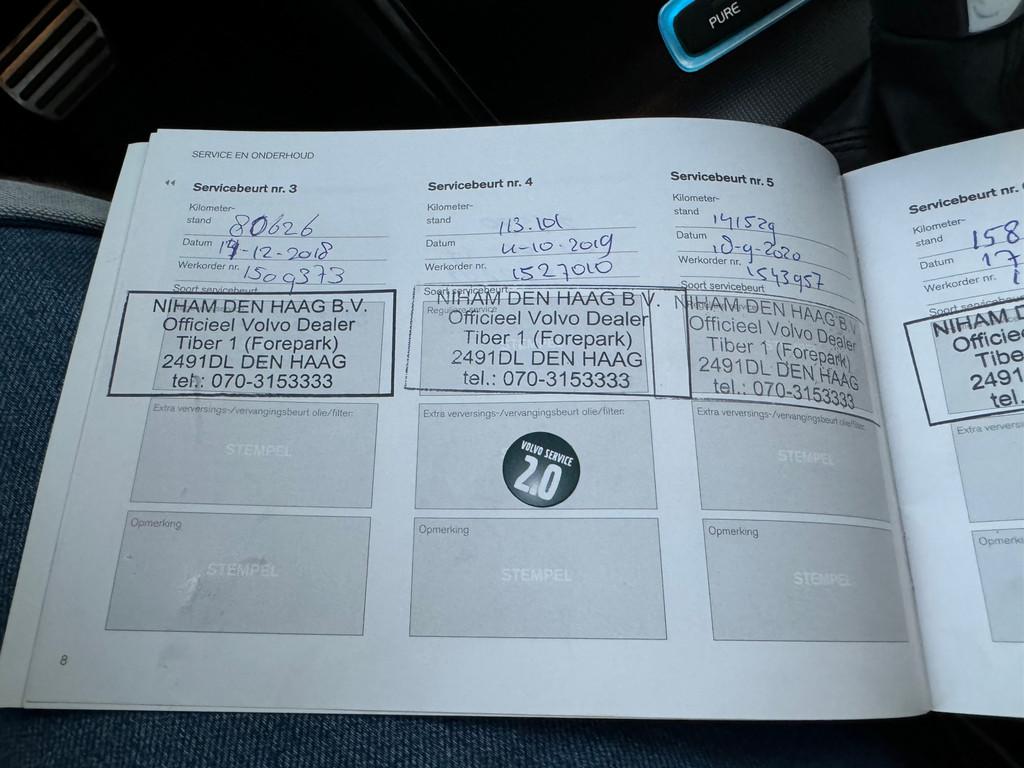 PURE
SERVICE EN ONDERHOUD
Servicebeurt nr. 3
Kilometer-
stand 80626
Datum 17-12-2018
Werkorder nr. 1509373
Soort servicebeurt
NIHAM DEN HAAG B.V.
Officieel Volvo Dealer
Tiber 1 (Forepark)
2491DL DEN HAAG
tel.: 070-3153333
Extra verversings-/vervangingsbeurt olie/filter:
STEMPEL
Opmerking
STEMPEL
8
Servicebeurt nr. 4
Kilometer-
stand 113.101
Datum 11-10-2019
Werkorder nr. 1527010
Soort servicebeurt
NIHAM DEN HAAG B.V.
Officieel Volvo Dealer
Tiber 1 (Forepark)
2491DL DEN HAAG
tel.: 070-3153333
Extra verversings-/vervangingsbeurt olie/filter:
VOLVO SERVICE
2.0
Opmerking
STEMPEL
Servicebeurt nr. 5
Kilometer-
stand 141529
Datum 10-9-2020
Werkorder nr. 1543957
Soort servicebeurt
NIHAM DEN HAAG B.V
Officieel Volvo Dealer
Tiber 1 (Forepark)
2491DL DEN HAAG
tel.: 070-3153333
Extra verversings-/vervangingsbeurt olie/filter:
STEMPEL
Opmerking
STEMPEL
Servicebeurt nr.
Kilometer-
stand 158
Datum 17
Werkorder nr. 1
Soort servicebeurt
NIHAM D
Officie
Tibe
2491
tel.
Extra verversi
Opmerki